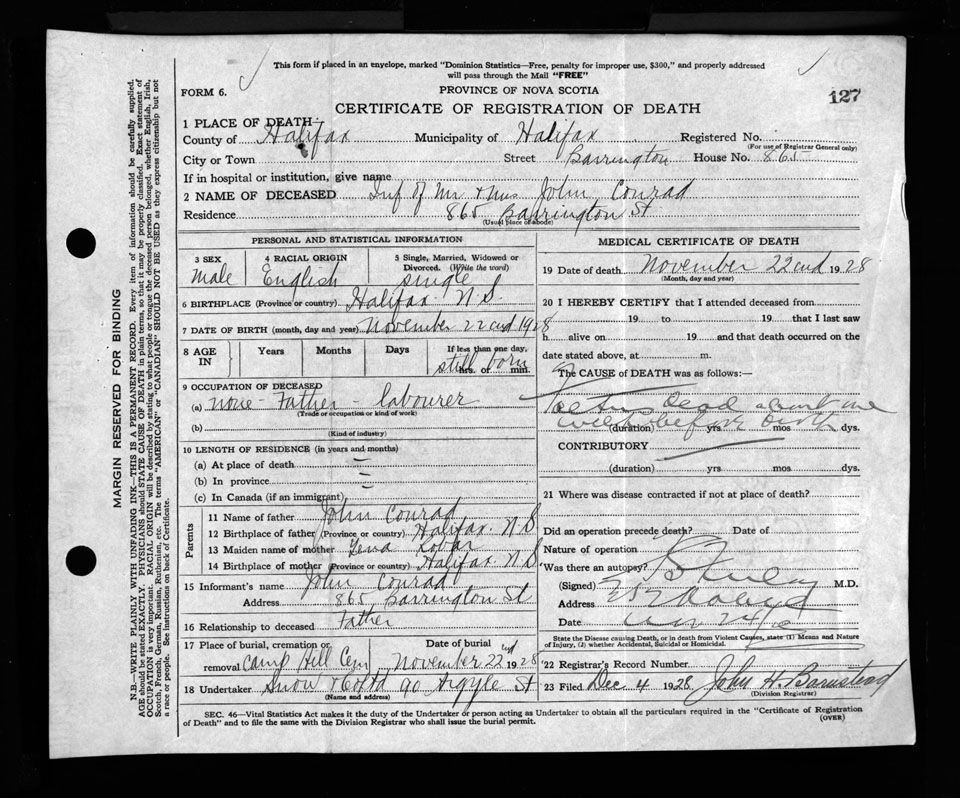 This form if placed in an envelope, marked "Dominion Statistics—Free, penalty for improper use, $300," and properly addressed
will pass through the Mail "FREE"
FORM 6.
PROVINCE OF NOVA SCOTIA
127
CERTIFICATE OF REGISTRATION OF DEATH
1 PLACE OF DEATH
County of Halifax Municipality of Halifax Registered No.
(For use of Registrar General only)
City or Town Street Barrington House No. 865
If in hospital or institution, give name
2 NAME OF DECEASED Inf of Mr & Mrs John Conrad
Residence 865 Barrington St
(Usual place of abode)
PERSONAL AND STATISTICAL INFORMATION
3 SEX 4 RACIAL ORIGIN 5 Single, Married, Widowed or
Divorced. (Write the word)
Male English single
6 BIRTHPLACE (Province or country) Halifax N.S.
7 DATE OF BIRTH (month, day and year) November 22nd 1928
8 AGE IN Years Months Days If less than one day,
still born
hrs. or min.
9 OCCUPATION OF DECEASED
(a) none - Father - labourer
(Trade or occupation or kind of work)
(b)
(Kind of industry)
10 LENGTH OF RESIDENCE (in years and months)
(a) At place of death
(b) In province
(c) In Canada (if an immigrant)
Parents
11 Name of father John Conrad
12 Birthplace of father (Province or country) Halifax. N S
13 Maiden name of mother
14 Birthplace of mother (Province or country) Halifax. N S
15 Informant's name John Conrad
Address 865 Barrington St
16 Relationship to deceased Father
17 Place of burial, cremation or Date of burial
removal Camp Hill Cem November 22nd 1928
18 Undertaker Snow & Co Ltd 90 Argyle St
(Name and address)
MEDICAL CERTIFICATE OF DEATH
19 Date of death November 22nd 1928
(Month, day and year)
20 I HEREBY CERTIFY that I attended deceased from
19 to 19 that I last saw
h alive on 19 and that death occurred on the
date stated above, at m.
The CAUSE of DEATH was as follows:—
dead about one
week before birth
(duration) yrs mos dys.
CONTRIBUTORY
(duration) yrs mos dys.
21 Where was disease contracted if not at place of death?
Did an operation precede death? Date of
Nature of operation
Was there an autopsy?
(Signed) M.D.
Address
Date
State the Disease causing Death, or in death from Violent Causes, state (1) Means and Nature
of Injury, (2) whether Accidental, Suicidal or Homicidal.
22 Registrar's Record Number
23 Filed Dec 4 1928 John H. Barnstead
(Division Registrar)
SEC. 46—Vital Statistics Act makes it the duty of the Undertaker or person acting as Undertaker to obtain all the particulars required in the "Certificate of Registration
of Death" and to file the same with the Division Registrar who shall issue the burial permit.
(OVER)
MARGIN RESERVED FOR BINDING
N.B.—WRITE PLAINLY WITH UNFADING INK—THIS IS A PERMANENT RECORD. Every item of information should be carefully supplied.
AGE should be stated EXACTLY. PHYSICIANS should STATE CAUSE OF DEATH in plain terms, so that it may be properly classified. Exact statement of
OCCUPATION is very important. RACIAL ORIGIN will be described by stating to what people or tongue the deceased person belonged, whether English, Irish,
Scotch, French, German, Russian, Ruthenian, etc. The terms "AMERICAN" or "CANADIAN" SHOULD NOT BE USED as they express citizenship but not
a race or people. See instructions on back of Certificate.